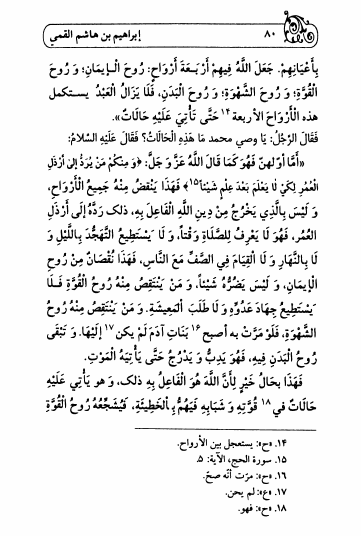 ٨٠ إبراهيم بن هاشم القمي
بِأَعْيَانِهِمْ. جَعَلَ اللَّهُ فِيهِمْ أَرْبَعَةَ أَرْوَاحٍ: رُوحَ الْإِيمَانِ؛ وَ رُوحَ
الْقُوَّةِ؛ وَ رُوحَ الشَّهْوَةِ؛ وَ رُوحَ الْبَدَنِ، فَلَا يَزَالُ الْعَبْدُ يستكمل
هذه الْأَرْوَاحَ الأربعة ١٤ حَتَّى تَأْتِيَ عَلَيْهِ حَالَاتٌ».
فَقَالَ الرَّجُلُ: يَا وصي محمد مَا هَذِهِ الْحَالَاتُ؟ فَقَالَ عَلَيْهِ السَّلامُ:
«أَمَّا أَوّلهنّ فَهُوَ كَمَا قَالَ اللَّهُ عَزَّ وَ جَلَّ: ﴿وَ مِنكُم مَّن يُرَدُّ إِلَى أَرْذَلِ
الْعُمُرِ لِكَيْ لَا يَعْلَمَ بَعْدَ عِلْمٍ شَيْئاً﴾١٥ فَهَذَا يَنْقُصُ مِنْهُ جَمِيعُ الْأَرْوَاحِ،
وَ لَيْسَ بِالَّذِي يَخْرُجُ مِنْ دِينِ اللَّهِ الْفَاعِلَ بِهِ، ذلك رَدَّهُ إِلَى أَرْذَلِ
الْعُمُرِ، فَهُوَ لَا يَعْرِفُ لِلصَّلَاةِ وَقْتاً، وَ لَا يَسْتَطِيعُ التَّهَجُّدَ بِاللَّيْلِ وَ
لَا بِالنَّهَارِ وَ لَا الْقِيَامَ فِي الصَّفِّ مَعَ النَّاسِ، فَهَذَا نُقْصَانٌ مِنْ رُوحِ
الْإِيمَانِ، وَ لَيْسَ يَضُرُّهُ شَيْئاً. وَ مَنْ يَنْتَقِصُ مِنْهُ رُوحُ الْقُوَّةِ فَلَا
يَسْتَطِيعُ جِهَادَ عَدُوِّهِ وَ لَا طَلَبَ الْمَعِيشَةِ. وَ مَنْ يَنْتَقِصُ مِنْهُ رُوحُ
الشَّهْوَةِ، فَلَوْ مَرَّتْ بِهِ أصبح ١٦ بَنَاتِ آدَمَ لَمْ يكن ١٧ إِلَيْهَا. وَ تَبْقَى
رُوحُ الْبَدَنِ فِيهِ، فَهُوَ يَدِبُّ وَ يَدْرُجُ حَتَّى يَأْتِيَهُ الْمَوْتِ.
فَهَذَا بِحَالِ خَيْرٍ لِأَنَّ اللَّهَ هُوَ الْفَاعِلُ بِهِ ذلك، وَ هو يَأْتِي عَلَيْهِ
حَالَاتٌ في ١٨ قُوَّتِهِ وَ شَبَابِهِ فَيَهُمُّ بِالْخَطِيئَةِ، فَيُشَجِّعُهُ رُوحُ الْقُوَّةِ
١٤. «ح»: يستعجل بين الأرواح.
١٥. سورة الحج، الآية: ٥.
١٦. «ح»: مرّت أنّه صحّ.
١٧. «ع»: لم يحن.
١٨. «ح»: فهو.